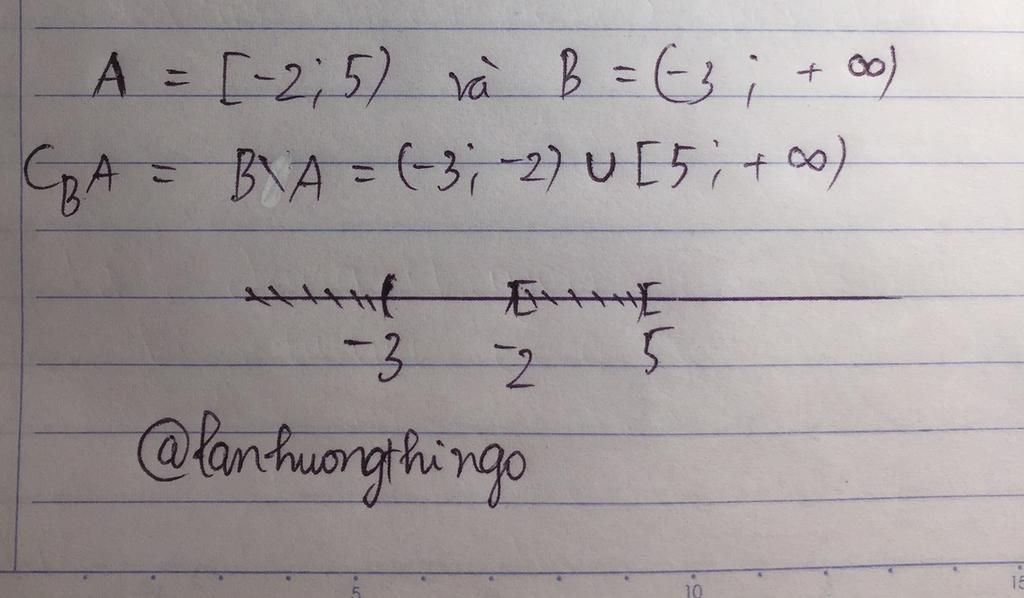 A = [-2; 5) và B = (-3; +∞)
C_B A = B\A = (-3; -2) ∪ [5; +∞)
( [ [
-3 -2 5
@lanhuongthingo
5 10 15